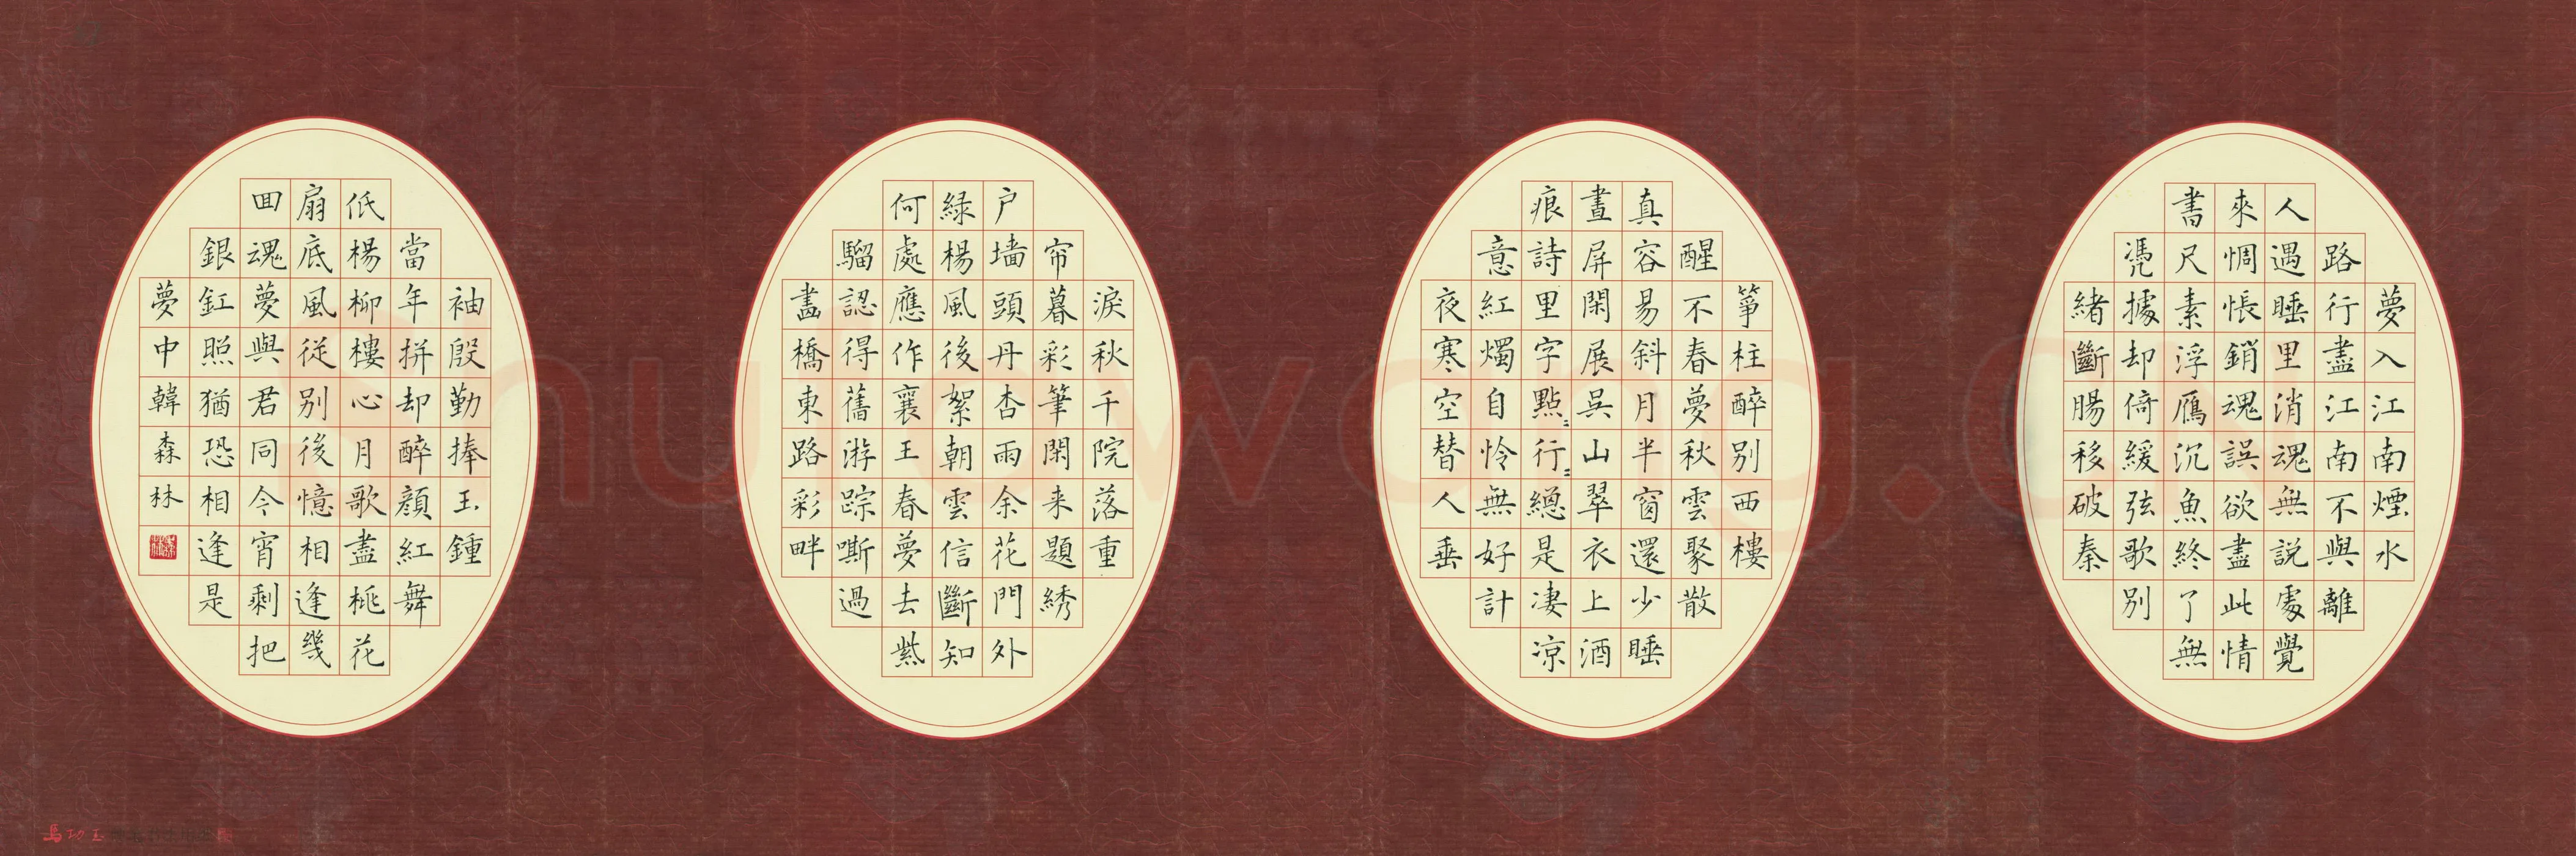 夢入江南煙水
路行盡江南不與離
人遇睡里消魂無說處覺
來惆悵銷魂誤欲盡此情
書尺素浮鴈沉魚終了無
憑據却倚緩弦歌別
緒斷腸移破秦
箏柱醉別西樓
醒不春夢秋雲聚散
真容易斜月半窗還少睡
畫屏閑展吳山翠衣上酒
痕詩里字點〻行〻總是凄涼
意紅燭自怜無好計
夜寒空替人垂
淚秋千院落重
帘暮彩筆閑来題綉
户墙頭丹杏雨余花門外
緑楊風後絮朝雲信斷知
何處應作襄王春夢去紫
騮認得舊游踪嘶過
畫橋東路彩畔
袖殷勤捧玉鍾
當年拚却醉顔紅舞
低楊柳樓心月歌盡桃花
扇底風從別後憶相逢幾
囬魂夢與君同今宵剩把
銀釭照猶恐相逢是
夢中韓森林